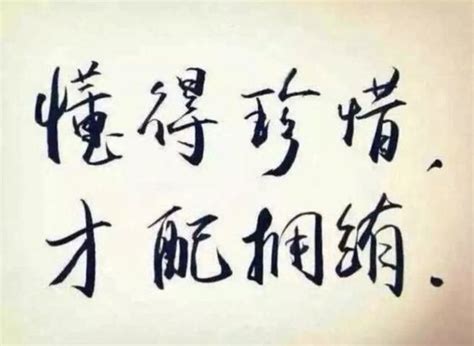 懂得珍惜、
才配拥絠.